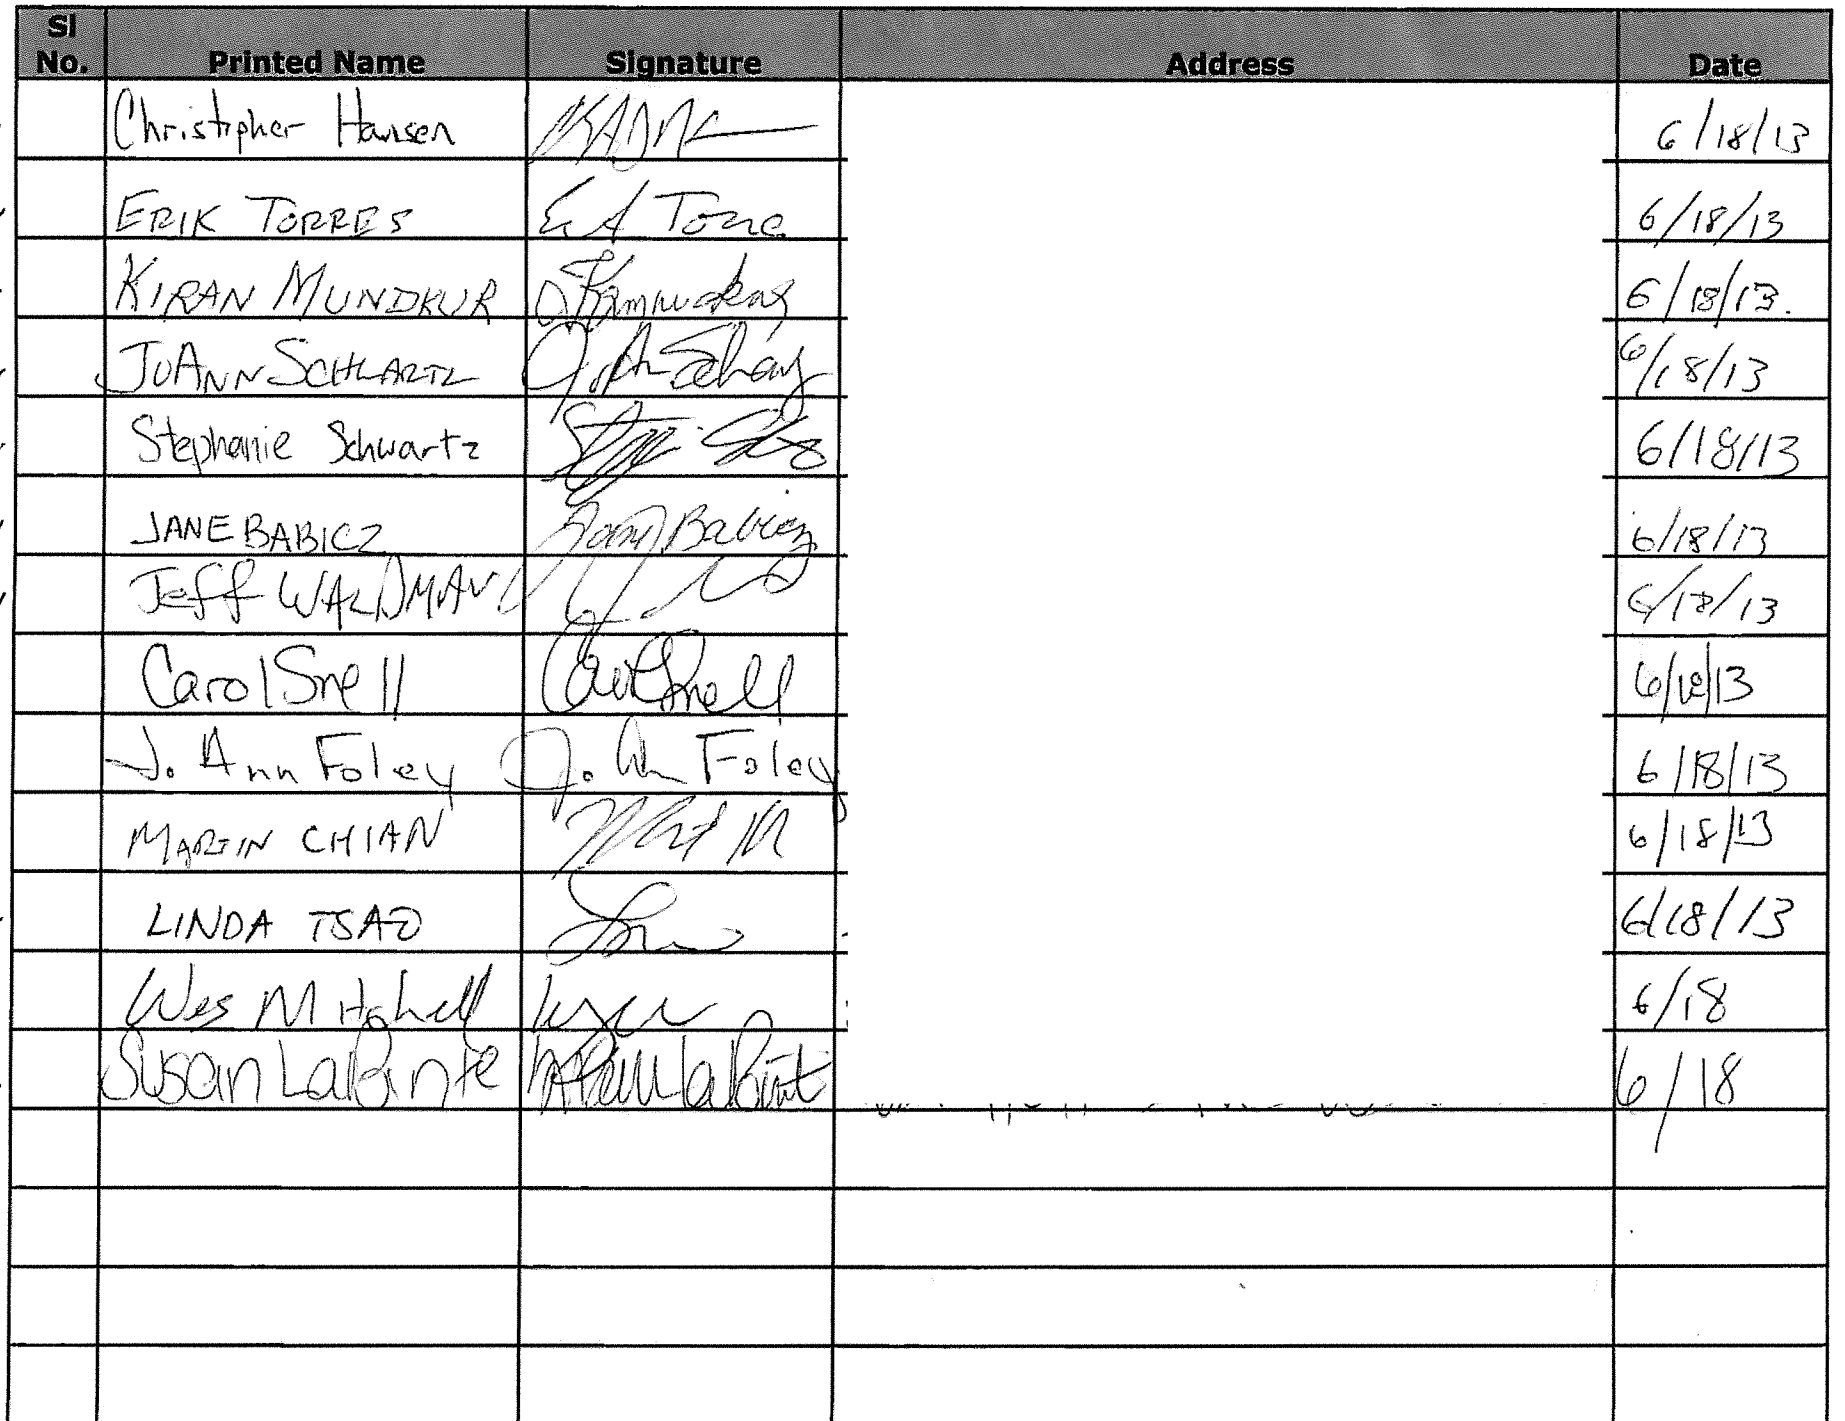 Sl No. Printed Name Signature Address Date
Christopher Hansen 6/18/13
ERIK TORRES E A Torre 6/18/13
KIRAN MUNDKUR 6/18/13.
JOANN SCHWARTZ 6/18/13
Stephanie Schwartz 6/18/13
JANE BABICZ Jane Babicz 6/18/13
Jeff WALDMAN 6/18/13
Carol Snell Carol Snell 6/18/13
J. Ann Foley J. Ann Foley 6/18/13
MARTIN CHIAN 6/18/13
LINDA TSAO 6/18/13
Wes Mitchell 6/18
Susan LaPointe 6/18